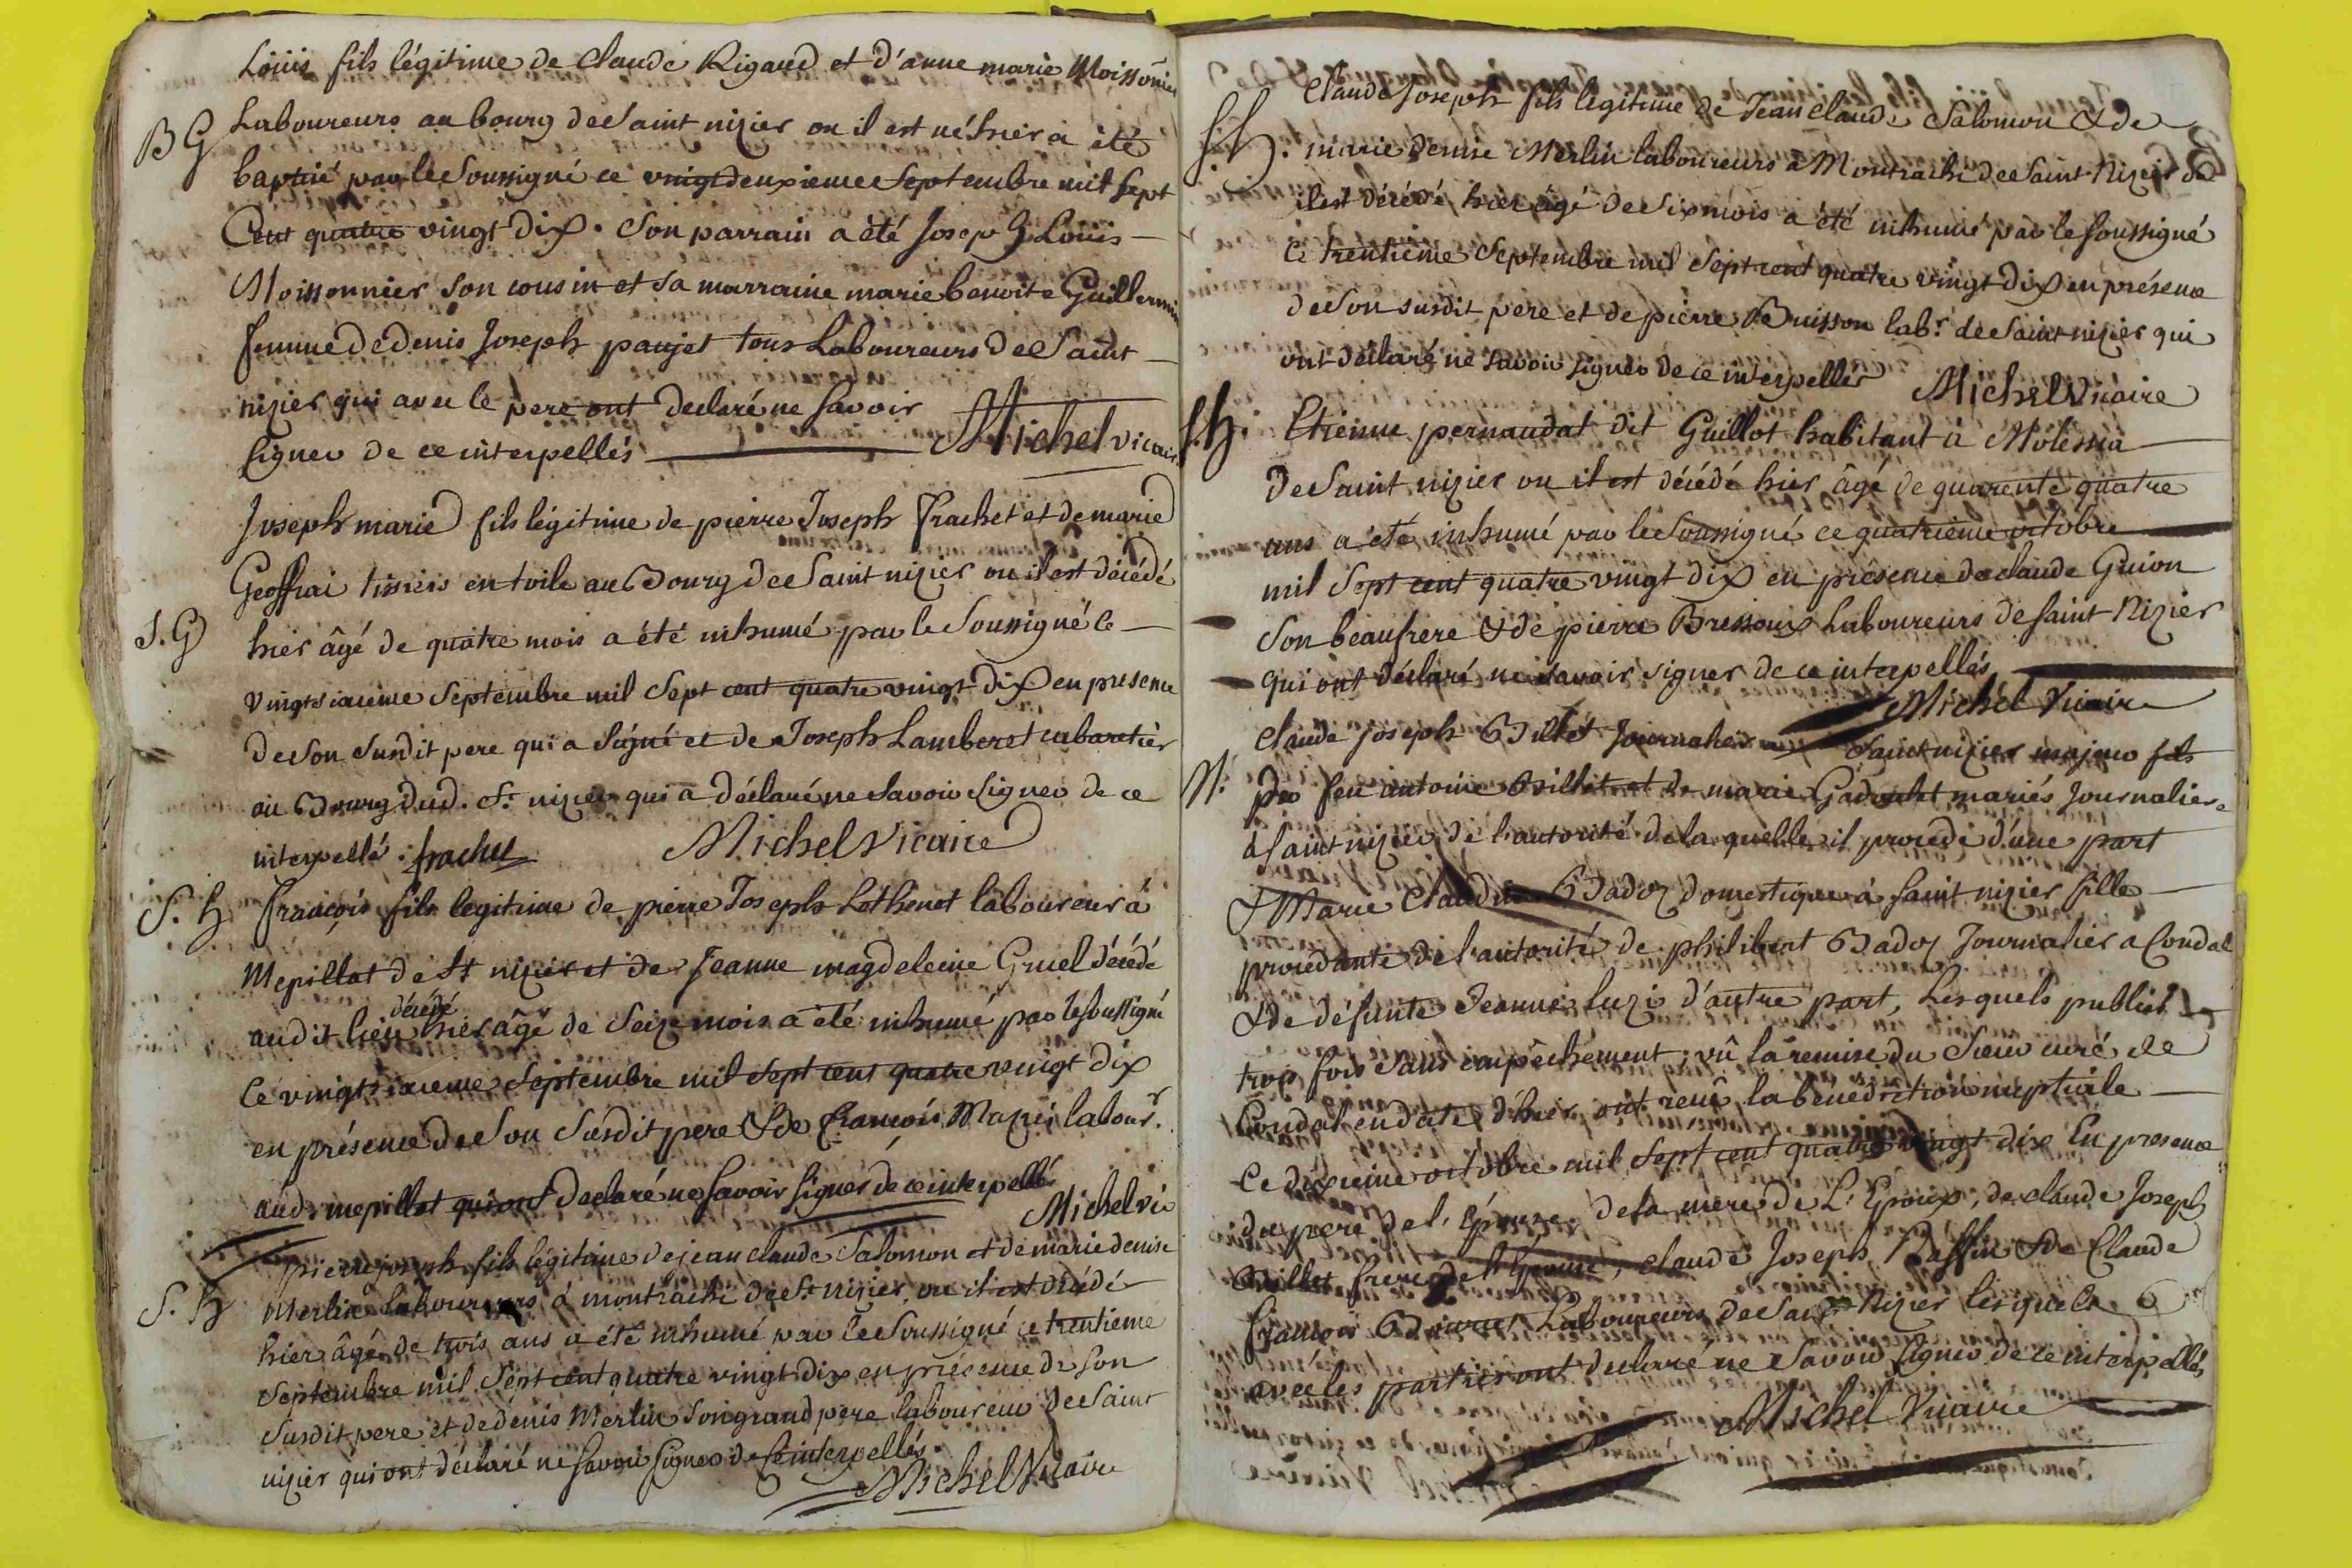 Loüis fils légitime de Claude Rigaud et d'anne marie Moissonnier
BG Laboureurs au bourg de Saint nizier ou il est né hier a été
baptisé par le Soussigné ce vingt deuxieme Septembre mil Sept
Cent quatre vingt Dix. Son parrain a été Joseph Louis
Moissonnier Son cousin et sa marraine marie benoite Guillermin
femme de denis Joseph paujet tous Laboureurs de Saint
nizier qui avec le pere ont declaré ne Savoir
signer de ce interpellés Michel vicaire
Joseph marie fils légitime de pierre Joseph Frachet et de marie
Geoffrai tissiers en toile au Bourg de Saint nizier ou il est décédé
S.G hier âgé de quatre mois a été inhumé par le Soussigné le
vingt sixieme Septembre mil Sept cent quatre vingt Dix en presence
de Son Susdit pere qui a Signé et de Joseph Lamberet cabaretier
au Bourg dud. St nizier qui a déclaré ne Savoir Signer de ce
interpellé. frachet Michel Vicaire
S. h François fils legitime de pierre Joseph Lothenet laboureur à
Mepillat de St nizier et de Jeanne magdeleine Gruel décédé
décédé
audit lieu hier âgé de Seize mois a été inhumé par le soussigné
ce vingt sixieme Septembre mil Sept cent quatre vingt dix
en présence de Son Susdit pere & de François Mazui labour.r
aud. mepillat qui ont declaré ne Savoir Signer de ce interpellé
Michel vic
pierre joseph fils légitime de jean claude Salomon et de marie denise
S. h Merlin laboureurs à montrachi de St nizier, ou il est décédé
hier âgé de trois ans a été inhumé par le Soussigné ce trentieme
Septembre mil Sept cent quatre vingt dix en présence de Son
Susdit pere et de denis Merlin Son grand pere laboureur de Saint
nizier qui ont déclaré ne Savoir Signer de ce interpellés
Michel Vicaire
Claude Joseph fils légitime de Jean Claude Salomon & de
S.h. marie denise Merlin laboureurs à Montrachi de Saint Nizier ou
il est décédé hier âgé de six mois a été inhumé par le Soussigné
ce trentieme Septembre mil Sept cent quatre vingt Dix en présence
de Son susdit pere et de pierre Buisson labr. de Saint nizier qui
ont declaré ne Savoir signer de ce interpellés Michel Vicaire
S.h. Etienne pernaudat dit Guillot habitant à Molessia
de Saint nizier ou il est décédé hier âgé de quarente quatre
ans a été inhumé par le Soussigné ce quatrieme octobre
mil Sept cent quatre vingt dix en présence de claude Guion
Son beaufrere & de pierre Bressoux Laboureurs de Saint Nizier
qui ont déclaré ne Savoir Signer de ce interpellés
Michel Vicaire
Claude joseph Billet Journalier Saint nizier majeur fils
M. De feu antoine Billet et de marie Gadoulet mariés Journaliers
à Saint nizier de l'autorité de la quelle il procede d'une part
& Marie Claudine Badoz domestique à Saint nizier fille
procedante de l'autorité de philibert Badoz Journalier à Condal
& de défunte Jeanne luzi d'autre part, Lesquels publiés
trois fois sans empêchement, vû la remise du Sieur curé de
Condal en date d'hier ont recû la bénédiction nuptiale
ce dixieme octobre mil Sept cent quatre vingt dix En presence
du pere de l'épouse, de la mere de L'Epoux, de claude Joseph
Billet frere de l'Epoux, claude Joseph Raffin & de Claude
françois Laboureurs de Saint Nizier lesquels
avec les parties ont declaré ne Savoir Signer de ce interpellés
Michel Vicaire